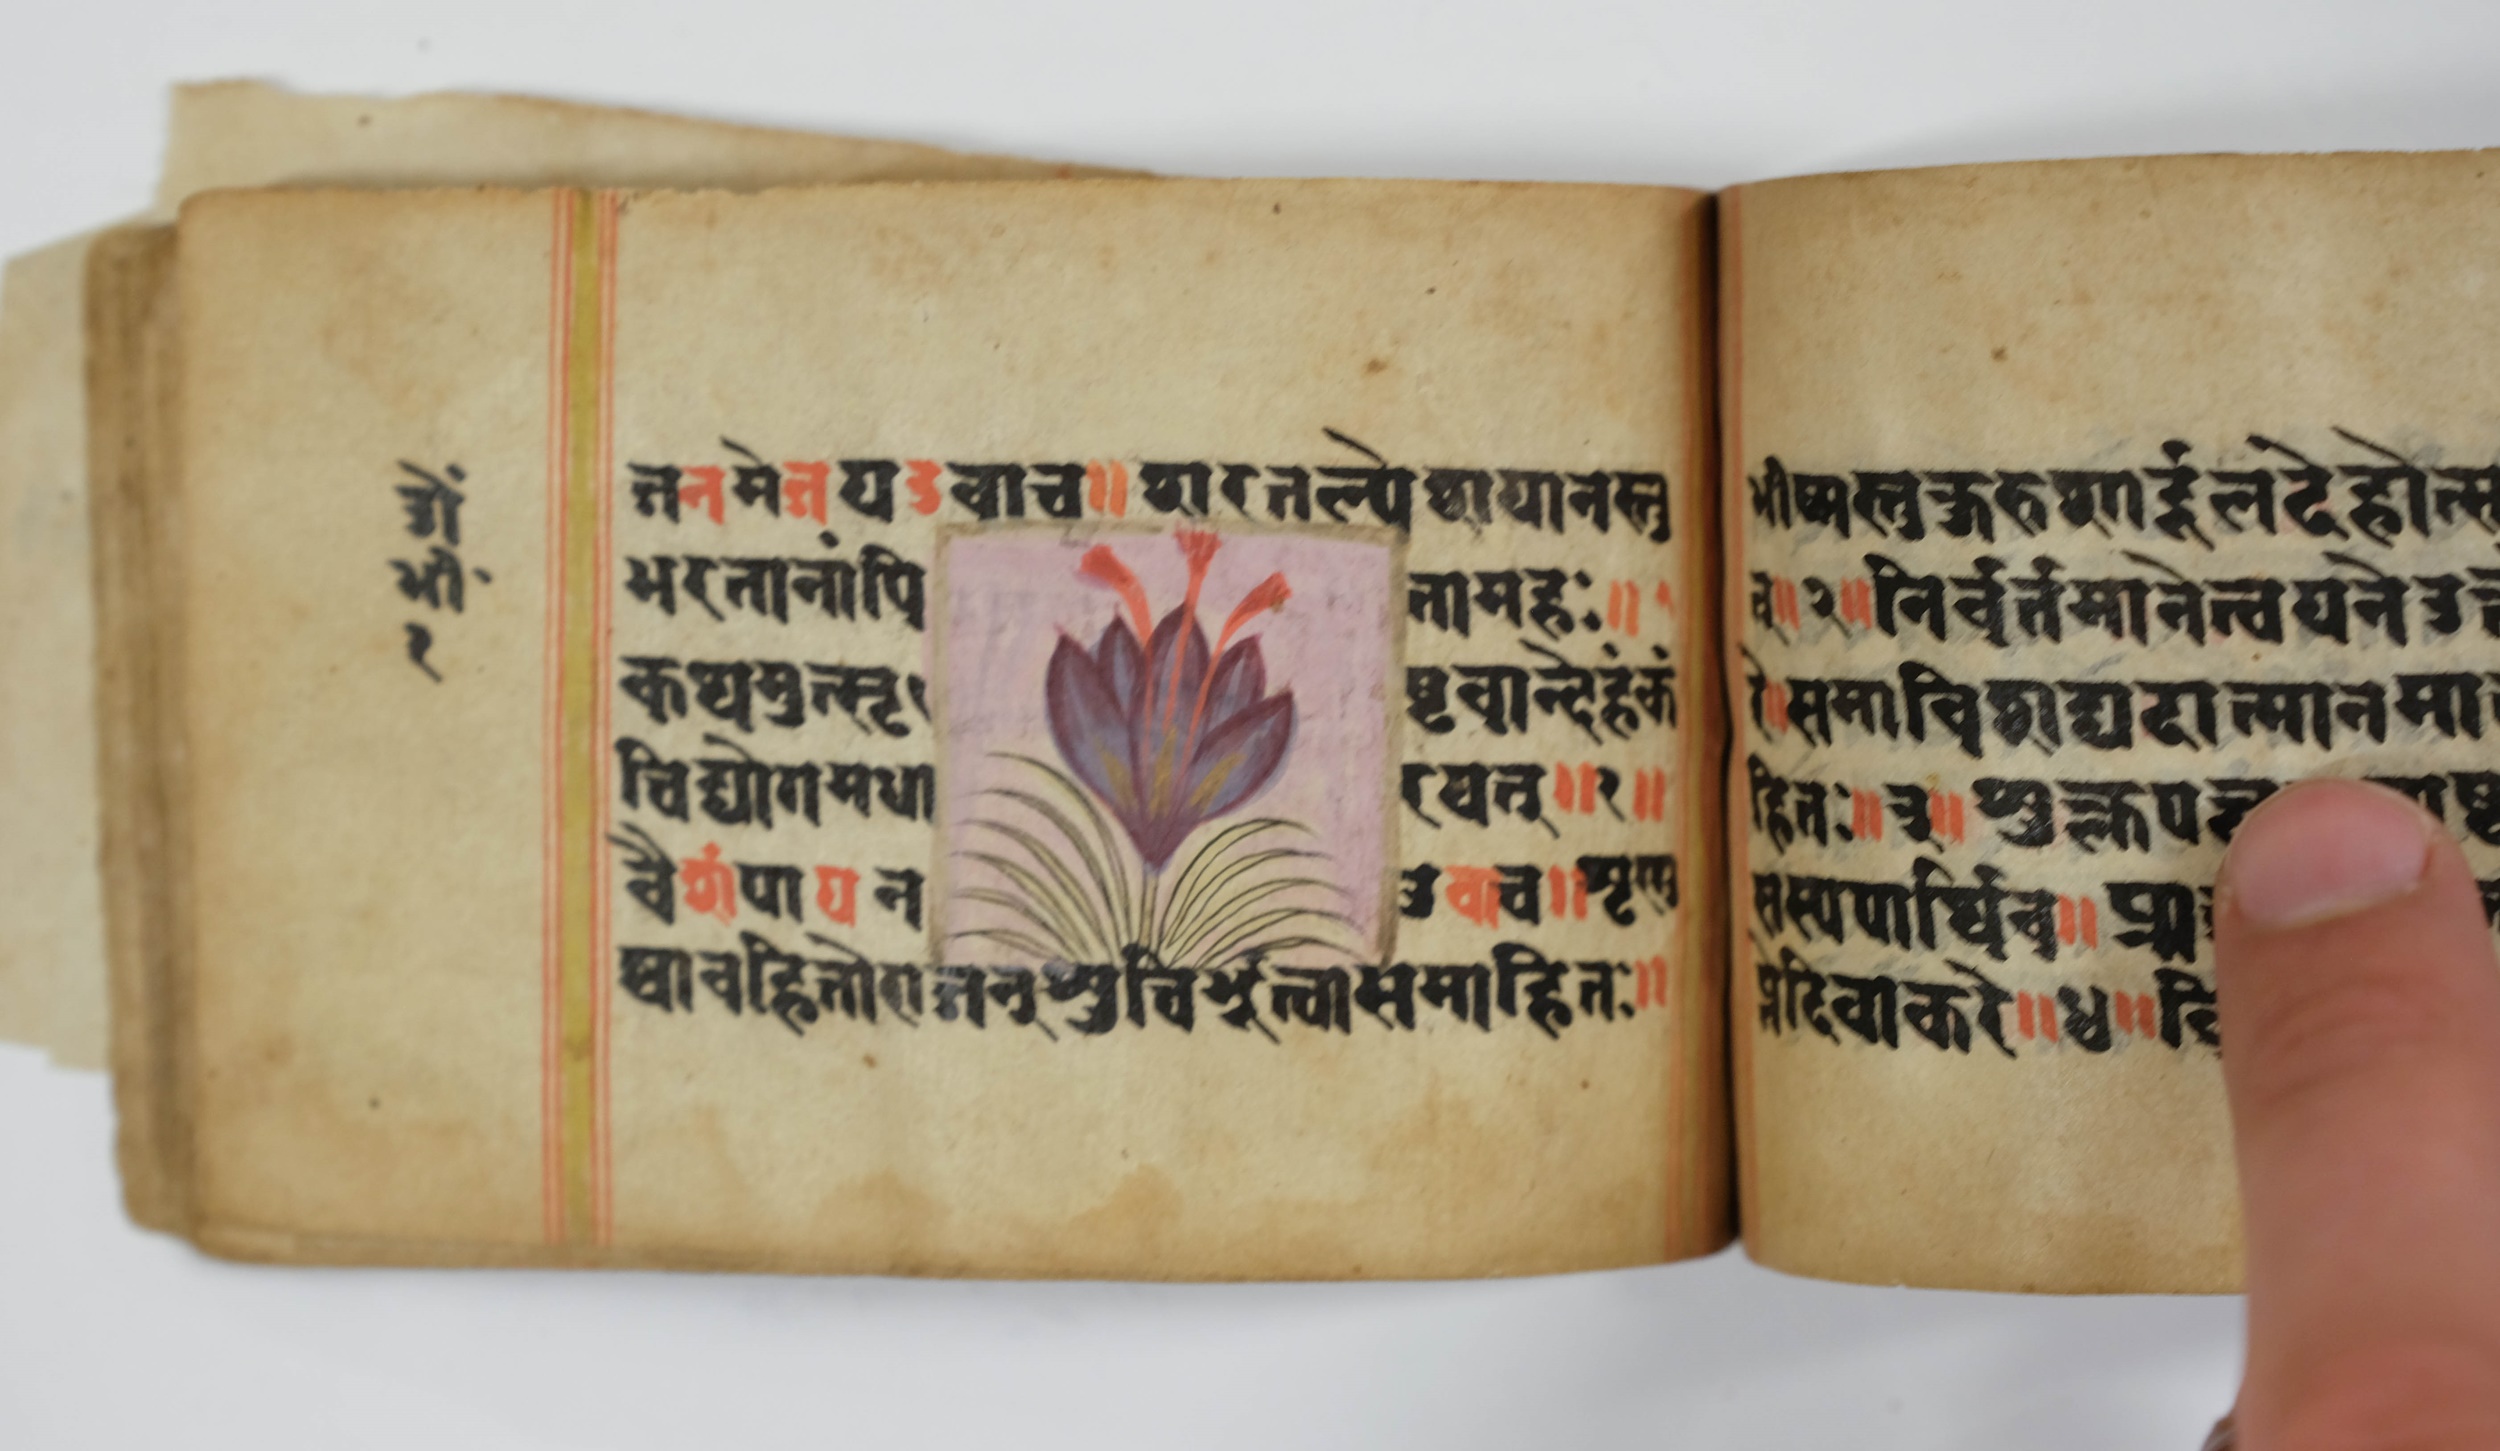 भी॰
२
जनमेजयउवाच॥शरतल्पेशयानस्तु
भरतानांपितामहः॥१
कथमुत्सृष्टवान्देहंकं
चिद्योगमधारयत्॥१॥
वैशंपायनउवाच॥शृणु
ष्वावहितोराजन्शुचिर्भूत्वासमाहितः॥
भीष्मस्तुकुरुशार्दूलदेहोत्स
॥२॥निर्वृत्तमानेत्वयनेउत्त
रे॥समाविशद्यदात्मानमा
हितः॥३॥शुक्लप
सस्यपार्थिव॥प्रा
प्तेदिवाकरे॥४॥वि